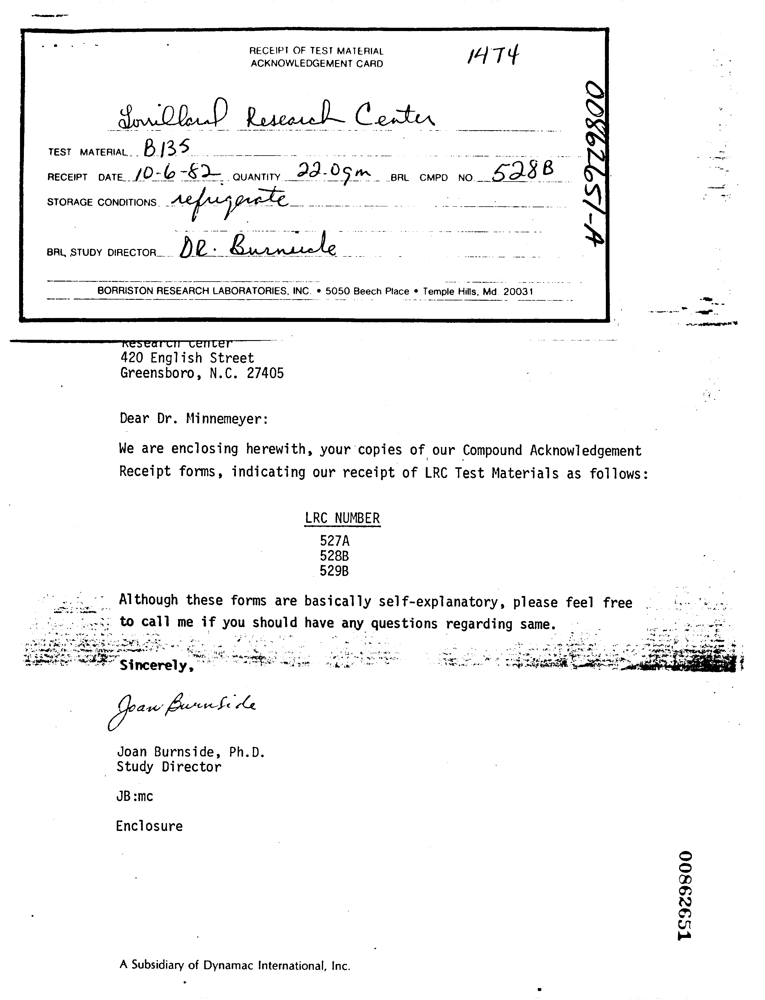 RECEIPT OF TEST MATERIAL
ACKNOWLEDGEMENT CARD
1474
Lorillard Research Center
TEST MATERIAL B135
RECEIPT DATE 10-6-82 QUANTITY 22.0gm BRL CMPD NO. 528B
STORAGE CONDITIONS refrigerate
BRL STUDY DIRECTOR DR. Burnside
BORRISTON RESEARCH LABORATORIES, INC. • 5050 Beech Place • Temple Hills, Md 20031
00862651-A
Research Center
420 English Street
Greensboro, N.C. 27405
Dear Dr. Minnemeyer:
We are enclosing herewith, your copies of our Compound Acknowledgement
Receipt forms, indicating our receipt of LRC Test Materials as follows:
LRC NUMBER
527A
528B
529B
Although these forms are basically self-explanatory, please feel free
to call me if you should have any questions regarding same.
Sincerely,
Joan Burnside
Joan Burnside, Ph.D.
Study Director
JB:mc
Enclosure
00862651
A Subsidiary of Dynamac International, Inc.